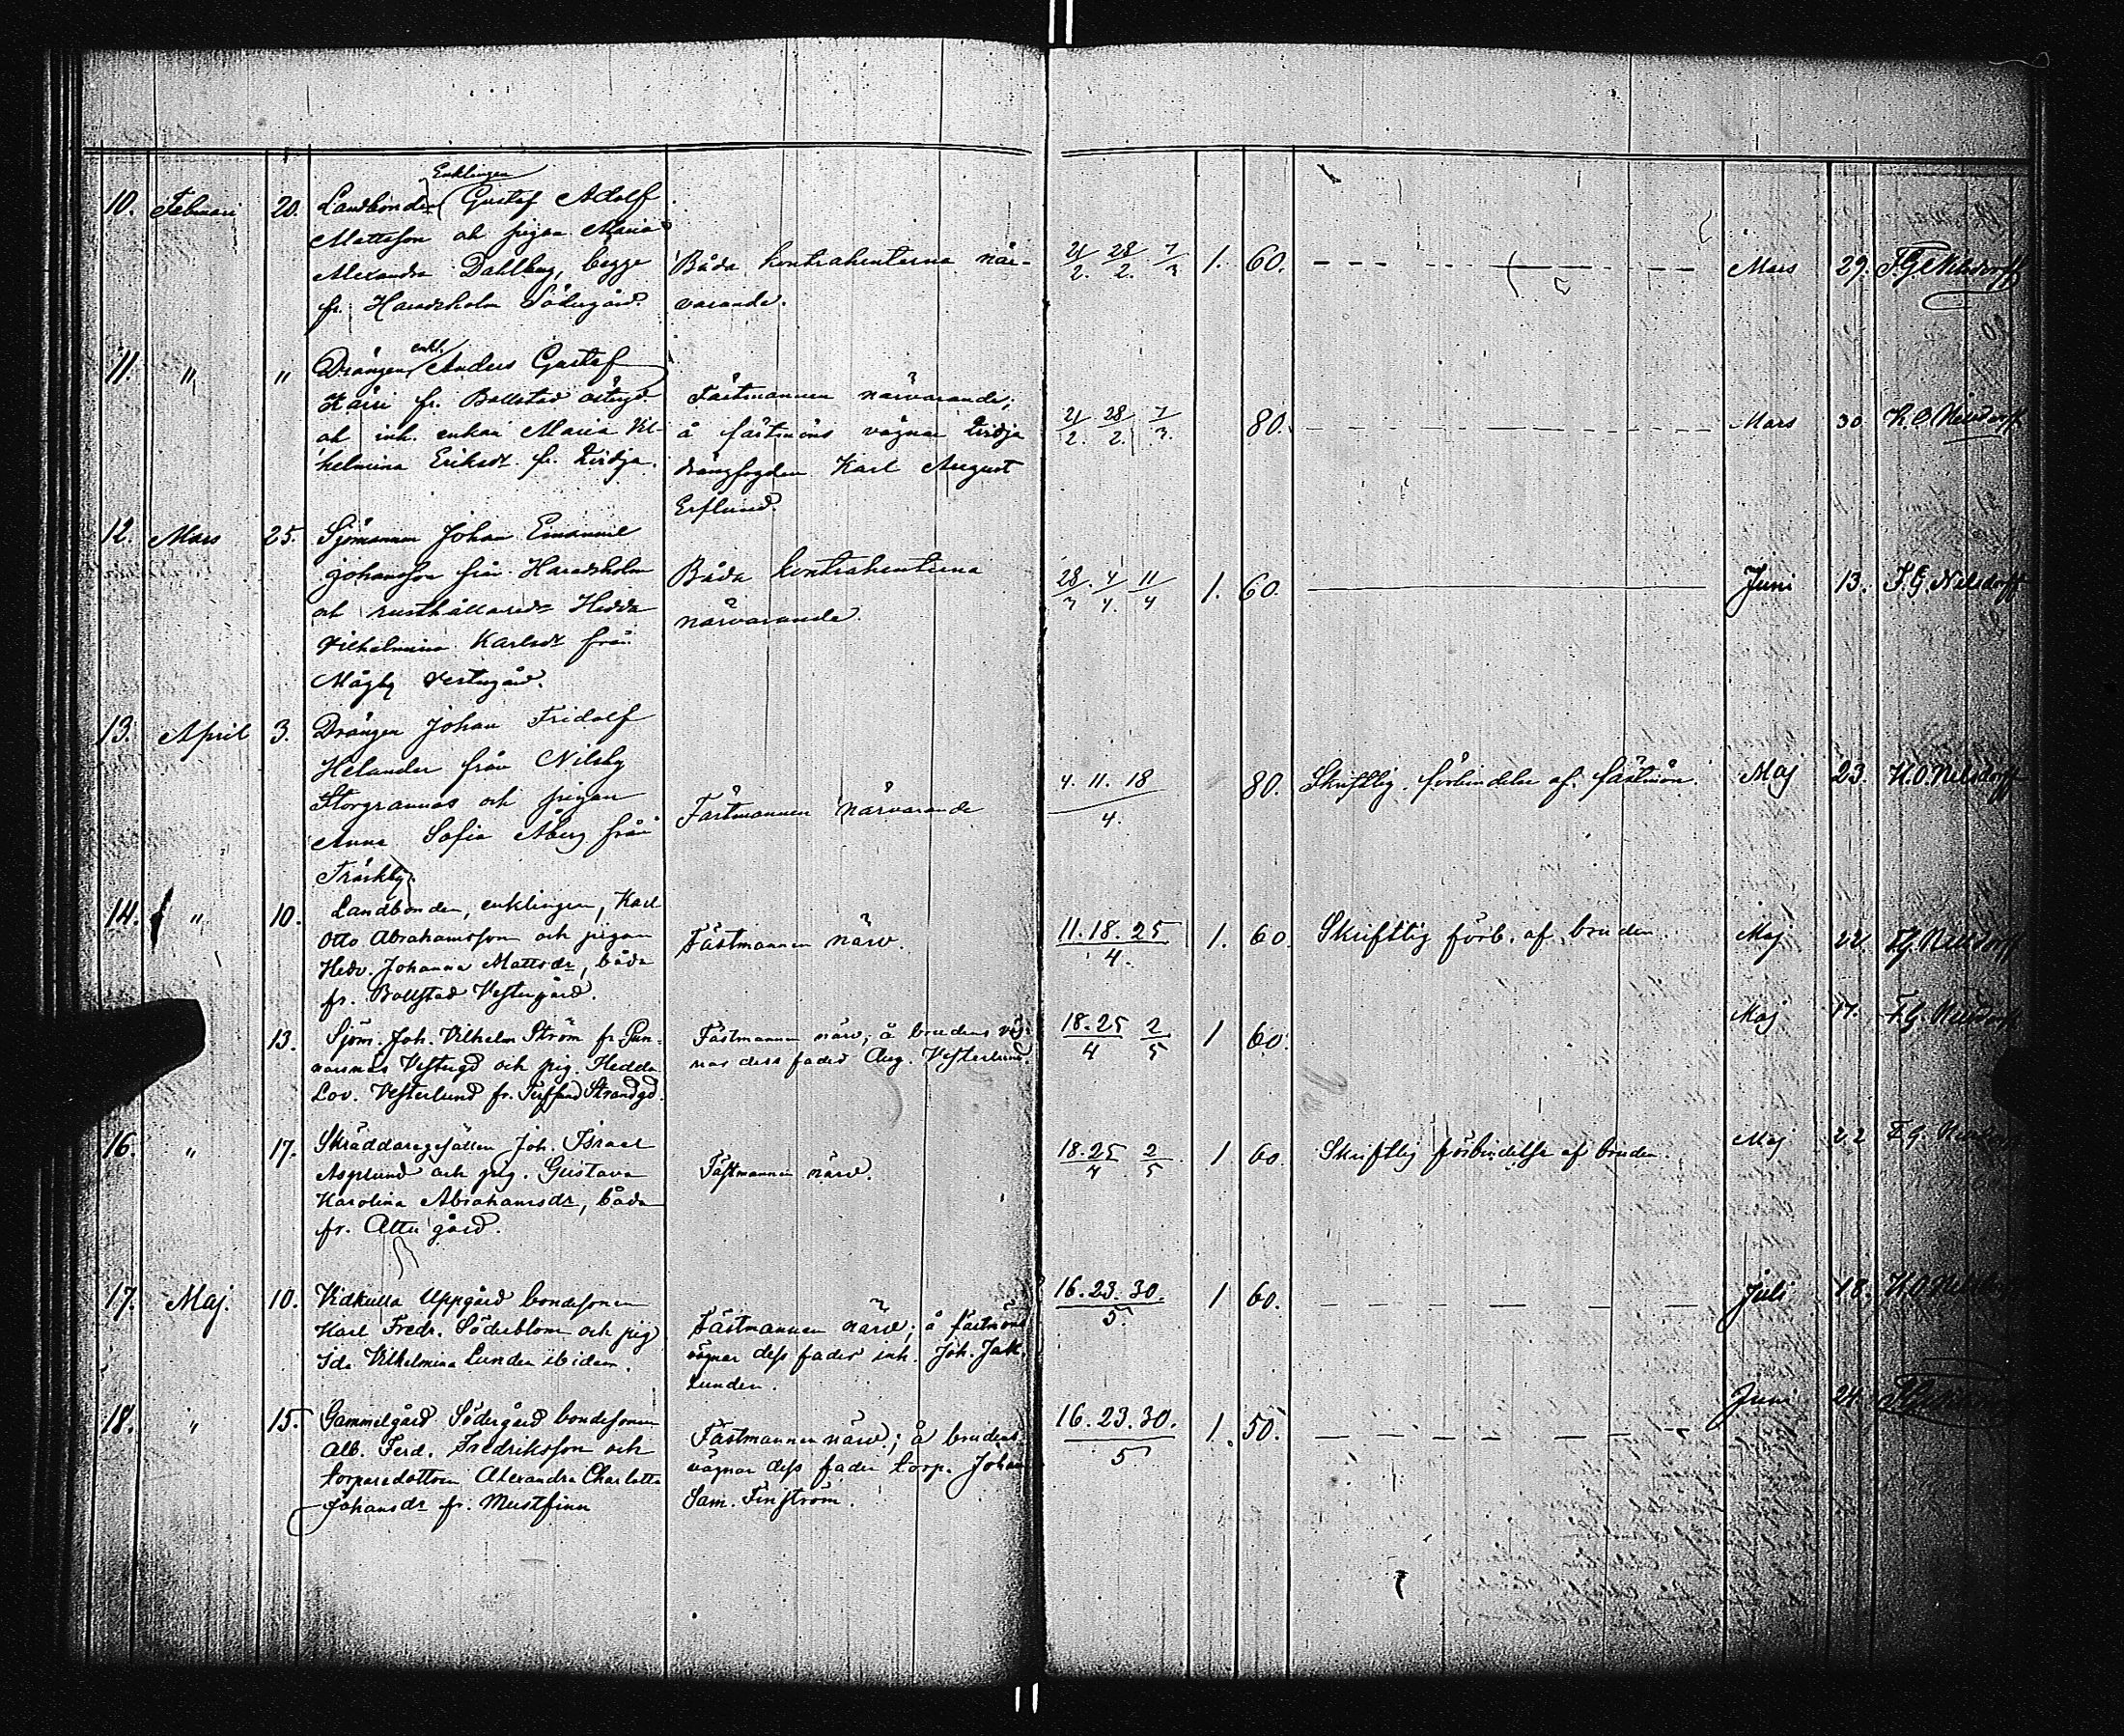 Enklingen
10. Februari 20. Landbonden Gustaf Adolf
Mattsson och pigan Maria
Alexandra Dahlberg, begge
fr. Haradsholm Södergård.
Båda kontrahenterna när-
varande.
21/2. 28/2. 7/3 1. 60. Mars 29. F.G. Nelsdorff
enkl.
11. " " Drängen Anders Gustaf
Kärri fr. Bollstad östergd.
och inh. enkan Maria Vil-
helmina Eriksdr. fr. Dirdja.
Fästmannen närvarande;
å fästmöns vägnar Dirdja
drängfogden Karl August
Erflund.
21/2. 28/2. 7/3. 80. Mars 30. K.O. Nelsdorff
12. Mars 25. Sjömannen Johan Emanuel
Johansson från Haradsholm
och rusthållaredr Hedda
Vilhelmina Karlsdr från
Mågby Vestergård.
Båda kontrahenterna
närvarande.
28/3. 4/4. 11/4 1. 60. Juni 13. F.G. Nelsdorff
13. April 3. Drängen Johan Fridolf
Helander från Nilsby
Storgrannas och pigan
Anna Sofia Åberg från
Träskby.
Fästmannen närvarande
4. 11. 18/4. 80. Skriftlig förbindelse af fästmön. Maj 23. K.O. Nelsdorff
14. " 10. Landbonden, enklingen, Karl
Otto Abrahamsson och pigan
Hedv. Johanna Mattsdr, båda
fr. Bollstad Vestergård.
Fästmannen närv.
11. 18. 25/4. 1. 60. Skriftlig förb. af bruden Maj 22. F.G. Nelsdorff
13. Sjöm. Joh. Vilhelm Ström fr. Pun-
narsnäs Vestergd och pig. Hedda
Lov. Vesterlund fr. Strandgd.
Fästmannen närv; å brudens väg-
nar dess fader Aug. Vesterlund.
18. 25/4 2/5 1 60. Maj 17. F.G. Nelsdorff
16. " 17. Skräddaregesällen Joh. Israel
Asplund och pig. Gustava
Karolina Abrahamsdr, båda
fr. Attu gård.
Fästmannen närv.
18. 25/4 2/5 1 60. Skriftlig förbindelse af bruden. Maj 22 F.G. Nelsdorff
17. Maj. 10. Vidkulla Uppgård bondesonen
Karl Fredr. Söderblom och pig.
Ida Vilhelmina Lunden ibidem.
Fästmannen närv; å fästmöns
vägnar dess fader inh. Joh. Jak.
Lunden.
16. 23. 30./5. 1 60. Juli 18. K.O. Nelsdorff
18. " 15. Gammelgård Södergård bondesonen
Alb. Ferd. Fredriksson och
torparedottern Alexandra Charlotta
Johansdr fr. Mustfinn
Fästmannen närv.; å brudens
vägnar dess fader torp. Johan
Sam. Finström.
16. 23. 30./5 1. 50. Juni 24.